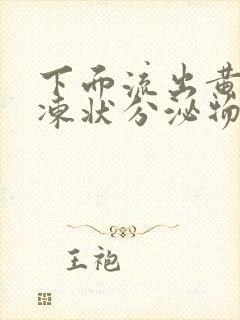 下面流出黄
凍状分泌物
王袍